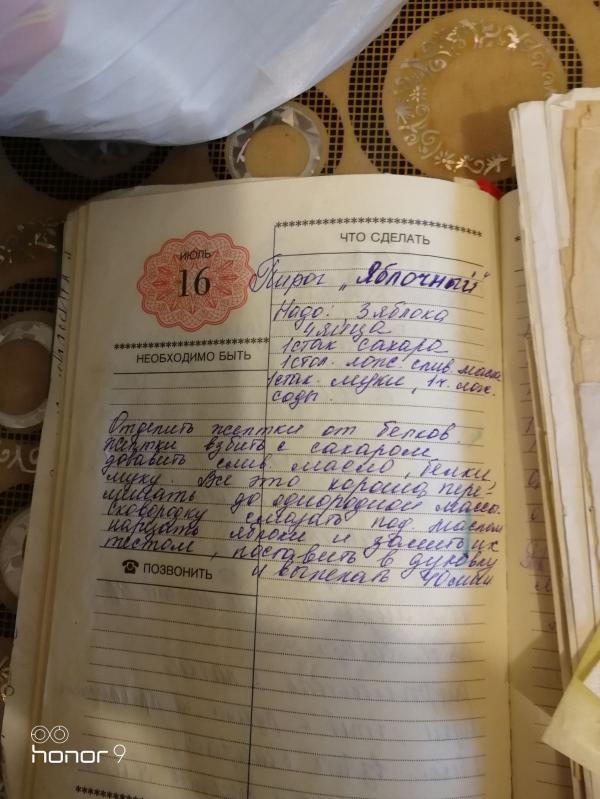 ЧТО СДЕЛАТЬ
ИЮЛЬ
16
Пирог „Яблочный"
Надо: 3 яблока
4 яйца
1 стак сахара
1 стол. ложс. слив. масла
1 стак. муки, 1 ч. лож.
соды.
НЕОБХОДИМО БЫТЬ
Отделить желтки от белков.
желтки взбить с сахаром
добавить слив. масло, белки
муку. Все это хорошо пере-
мешать до однородной массы.
Сковородку смазать под маслом
нарезать яблоки и залить их
тестом, поставить в духовку
и выпекать 40 мин
ПОЗВОНИТЬ
honor 9